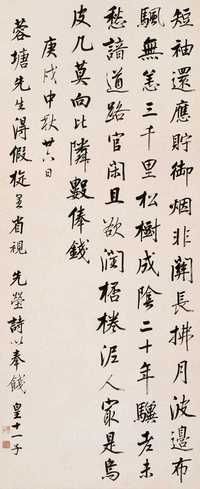 短袖還應貯御烟非關長拂月波邊布
颿無恙三千里松樹成陰二十年驥老未
愁諳道路官閑且欲潤桮棬泥人冣是烏
皮几莫向比隣數俸錢
庚戌中秋廿六日
蓉塘先生得假旋里省視 先塋詩以奉餞 皇十一子